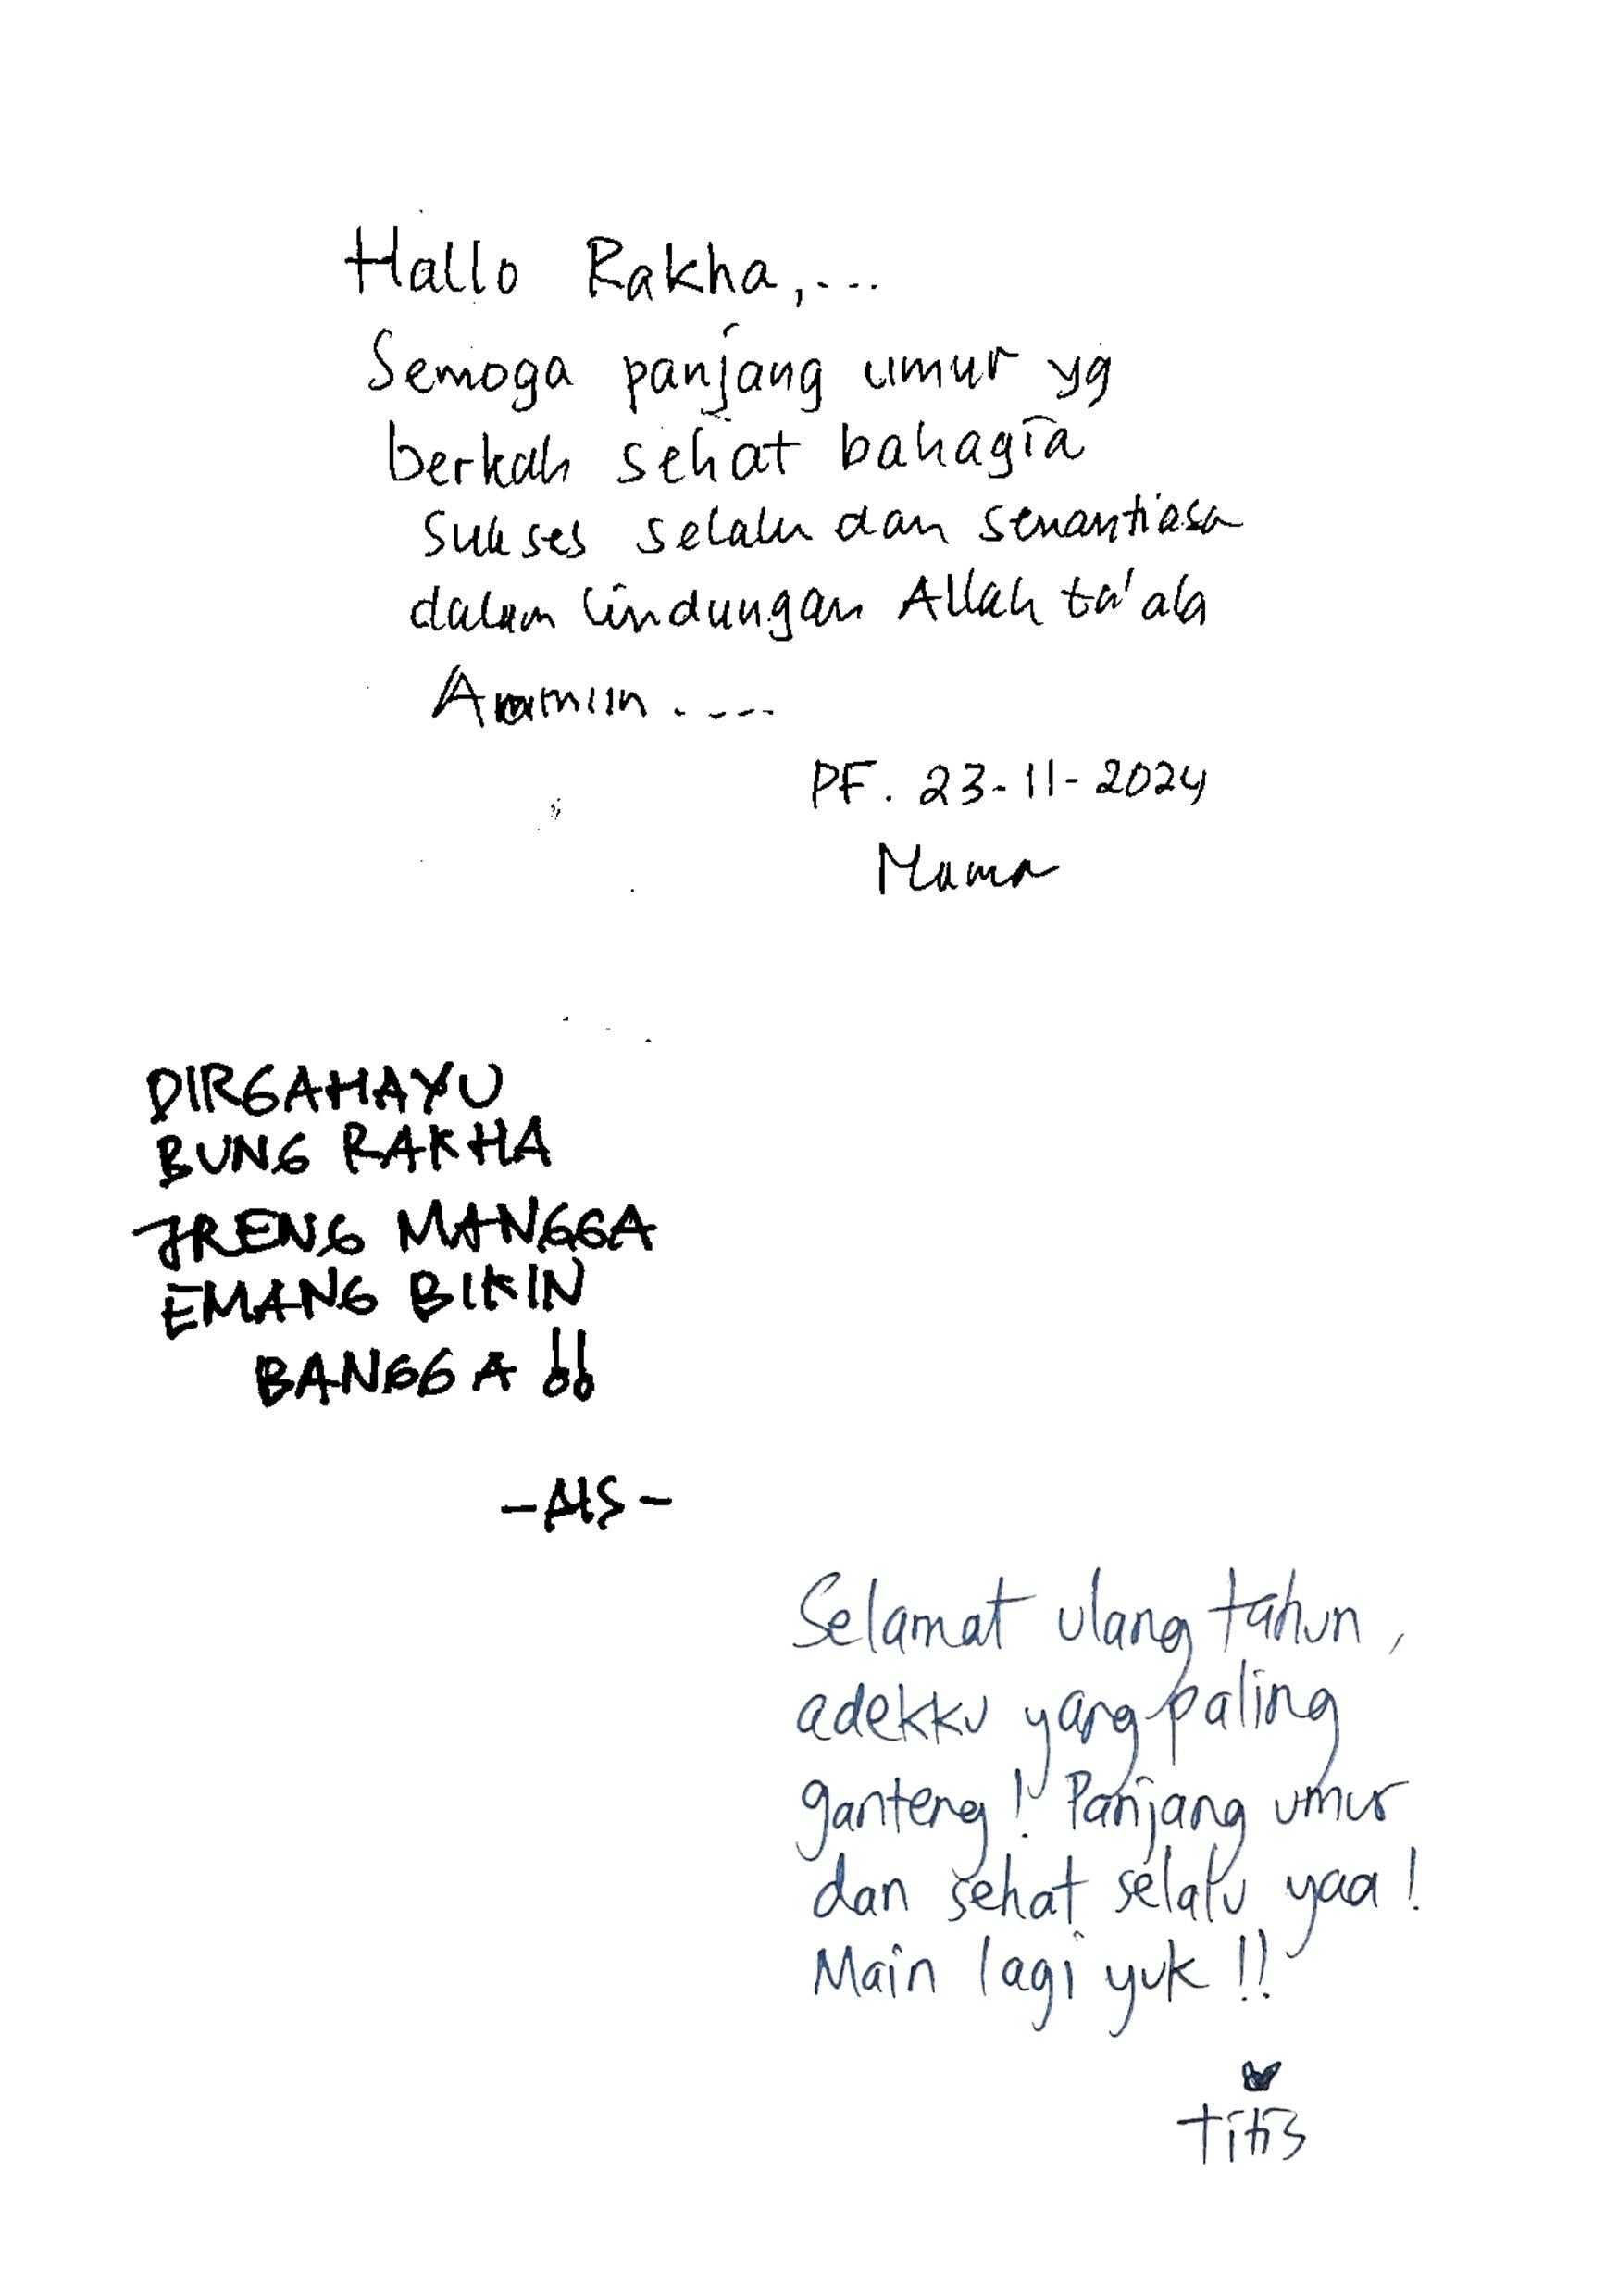 Hallo Rakha,...
Semoga panjang umur yg
berkah sehat bahagia
Sukses selalu dan senantiasa
dalam lindungan Allah ta'ala
Aamiin ....
PF. 23-11-2024
Mama
DIRGAHAYU
BUNG RAKHA
JRENG MANGGA
EMANG BIKIN
BANGGA !!
-AIS-
Selamat ulang tahun,
adekku yang paling
ganteng! Panjang umur
dan sehat selalu yaa!
Main lagi yuk!!
Titis